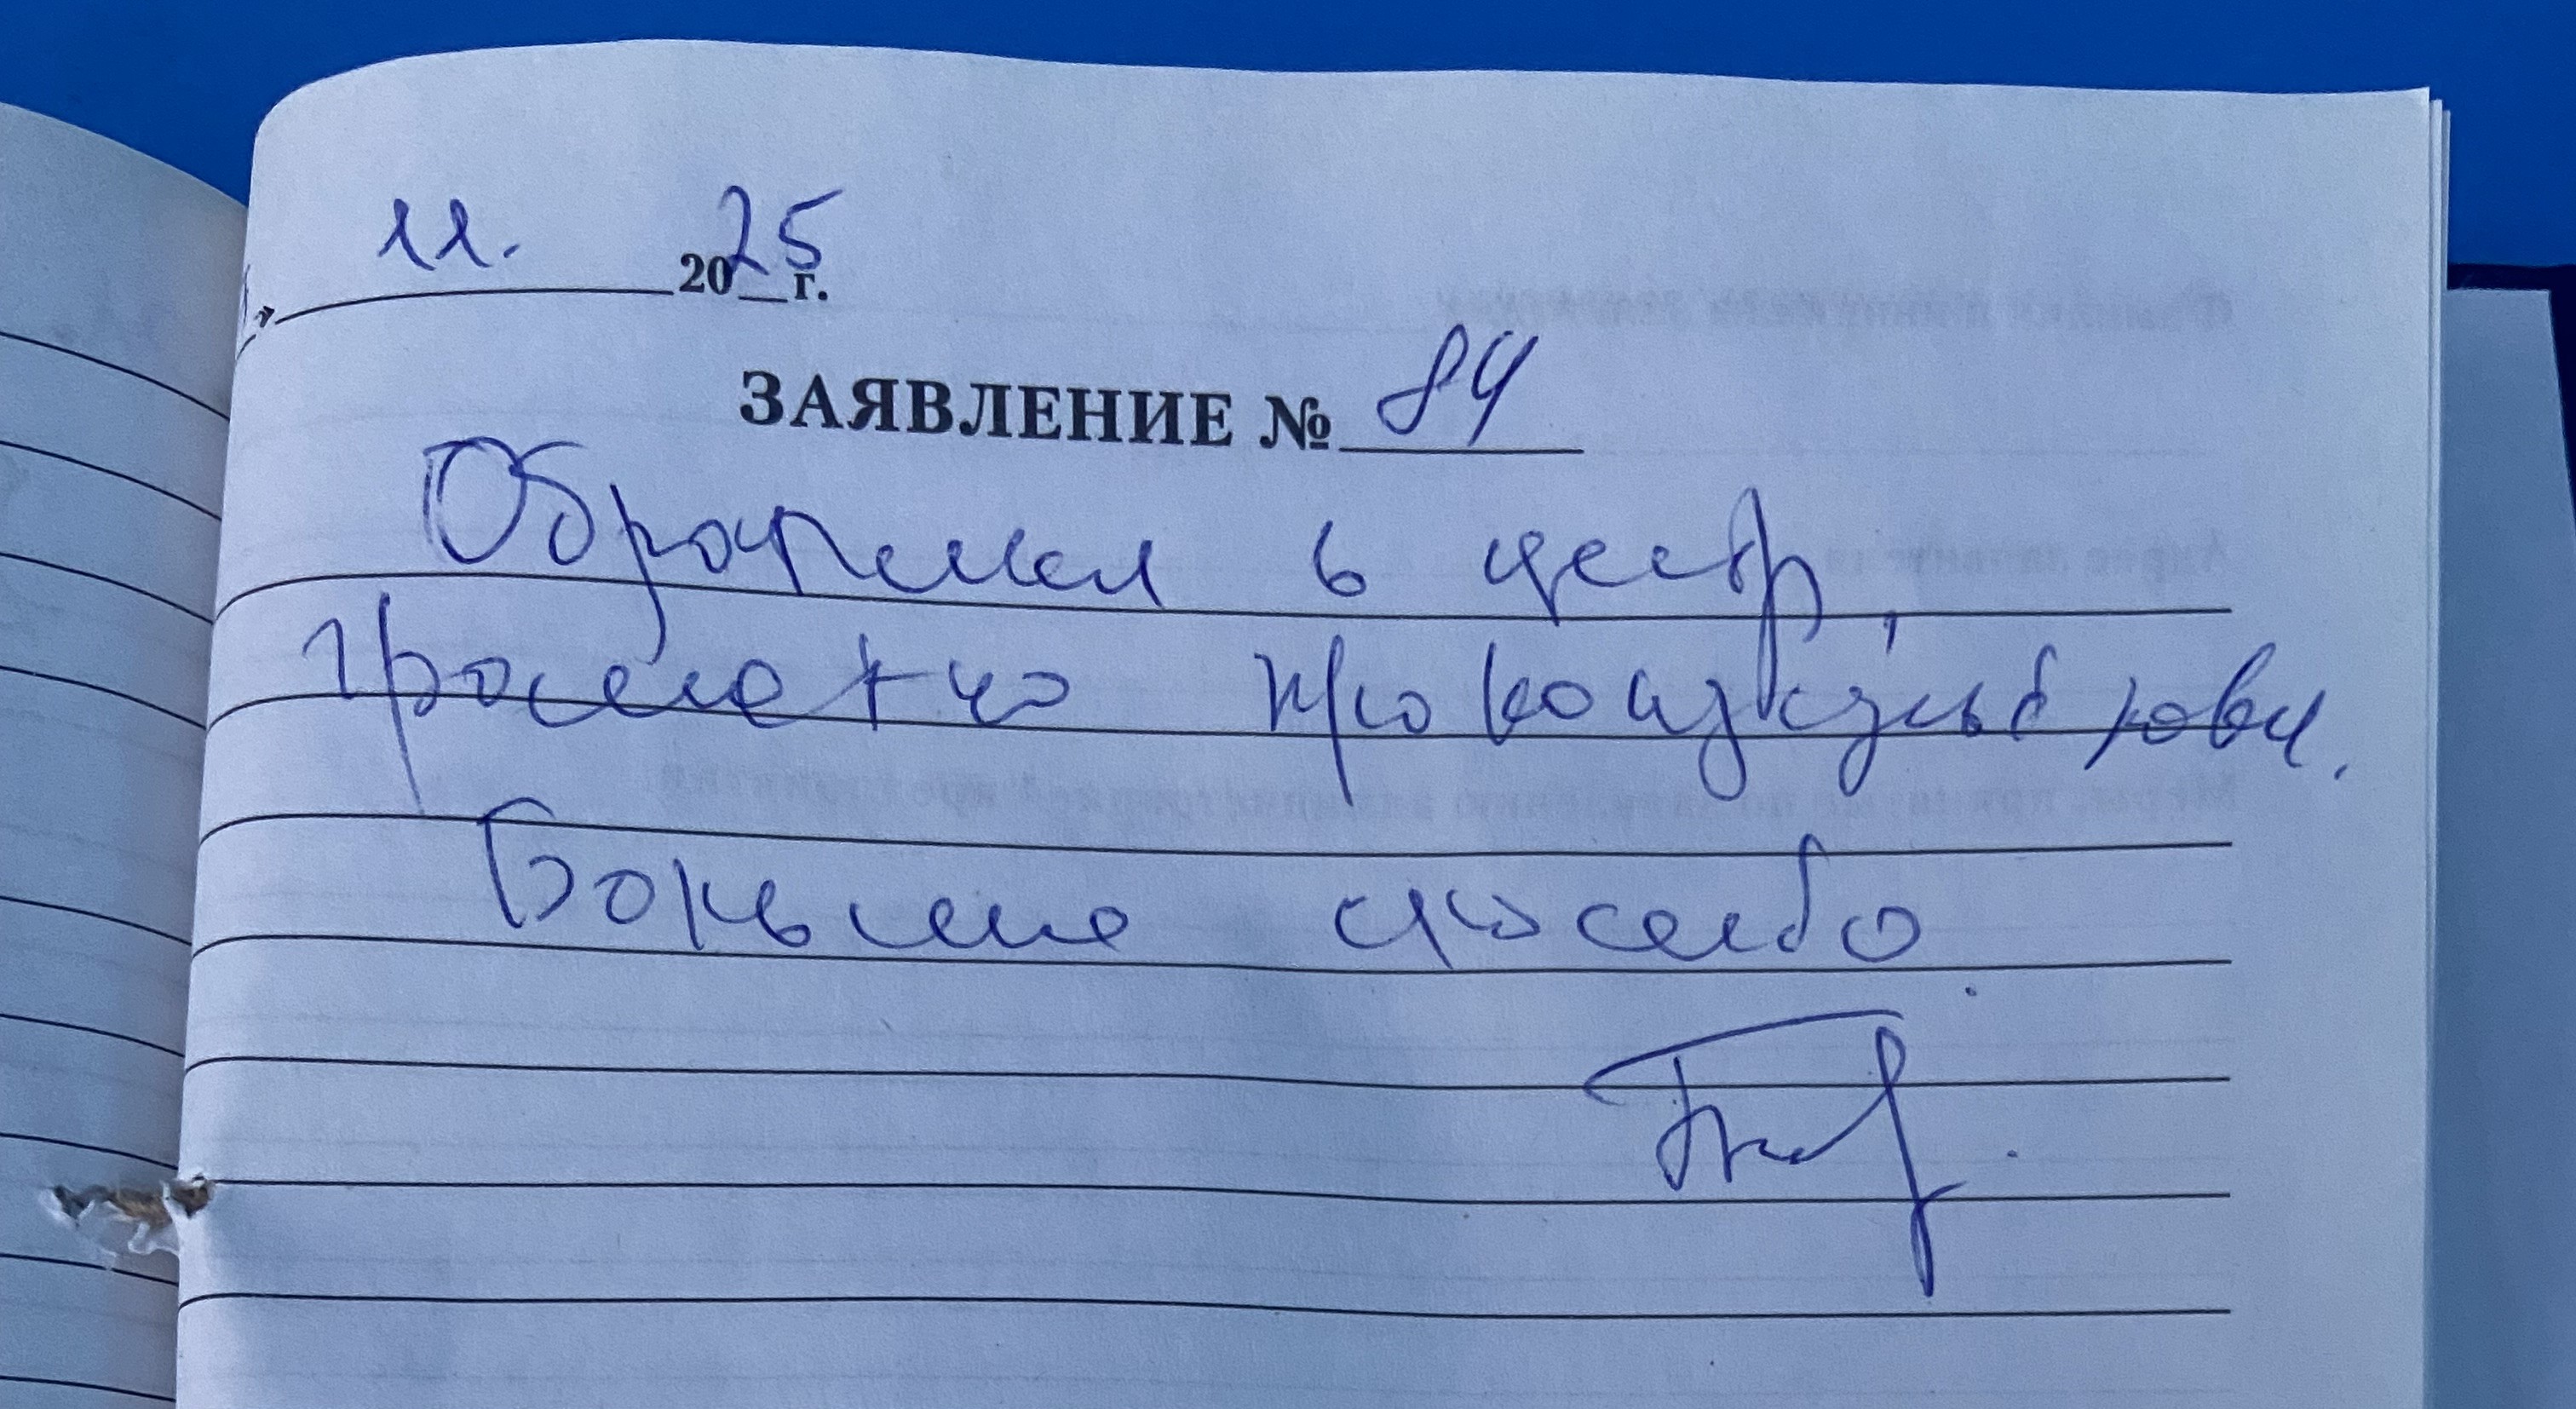 11. 2025 г.
ЗАЯВЛЕНИЕ № 84
Обратился в центр,
грамотно проконсультировали.
Большое спасибо.